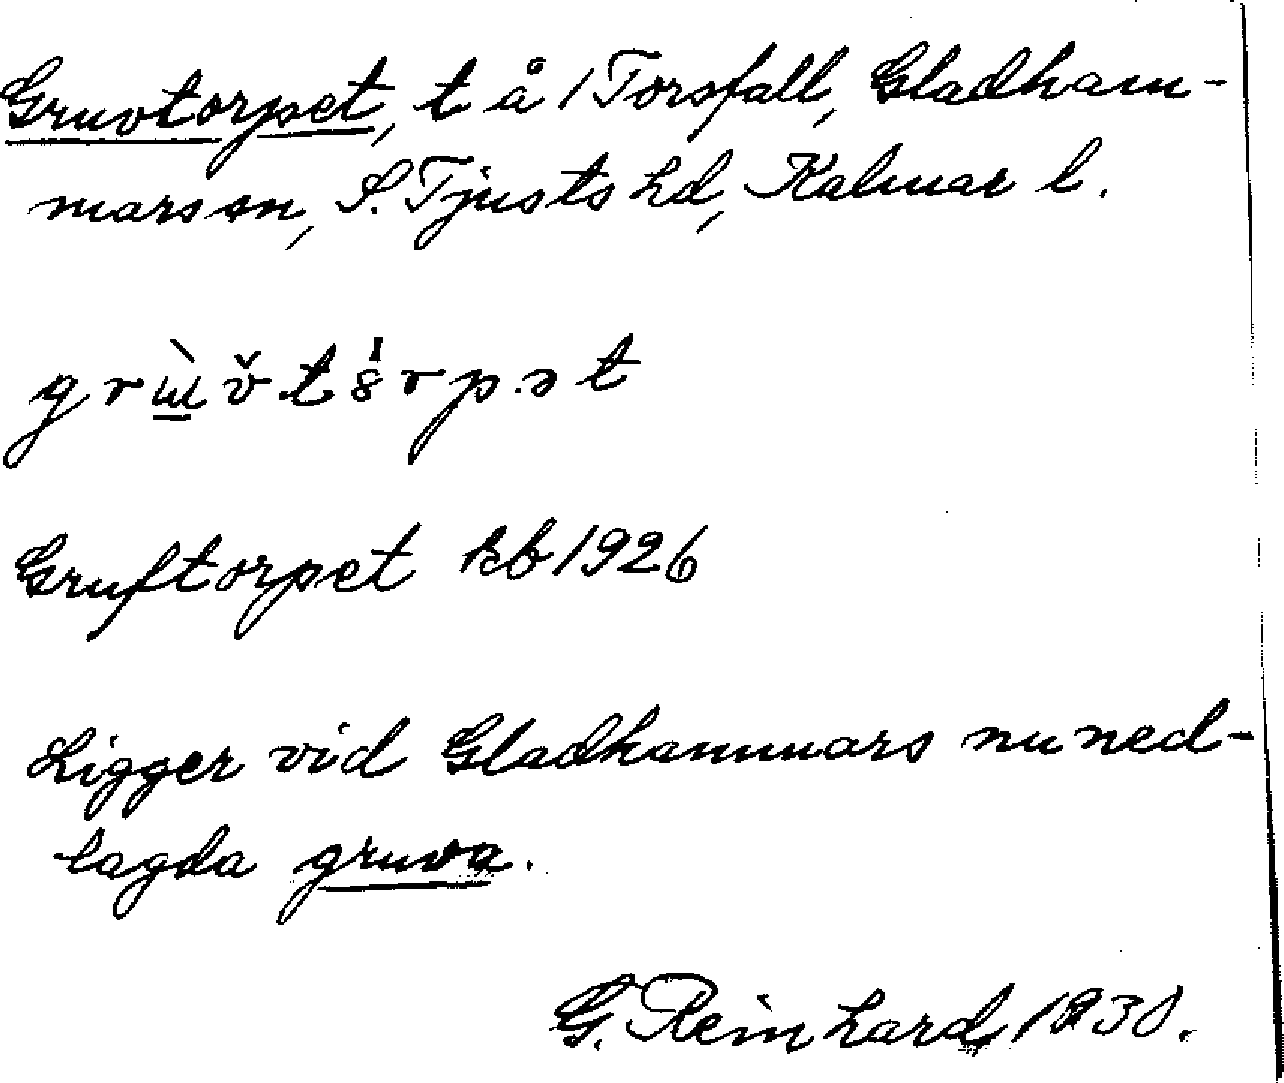 Gruvtorpet, t å 1 Torsfall, Gladham-
mars sn, S. Tjusts hd, Kalmar l.
Gruftorpet kb 1926
Ligger vid Gladhammars nu ned-
lagda gruva.
G. Reinhard 1930.